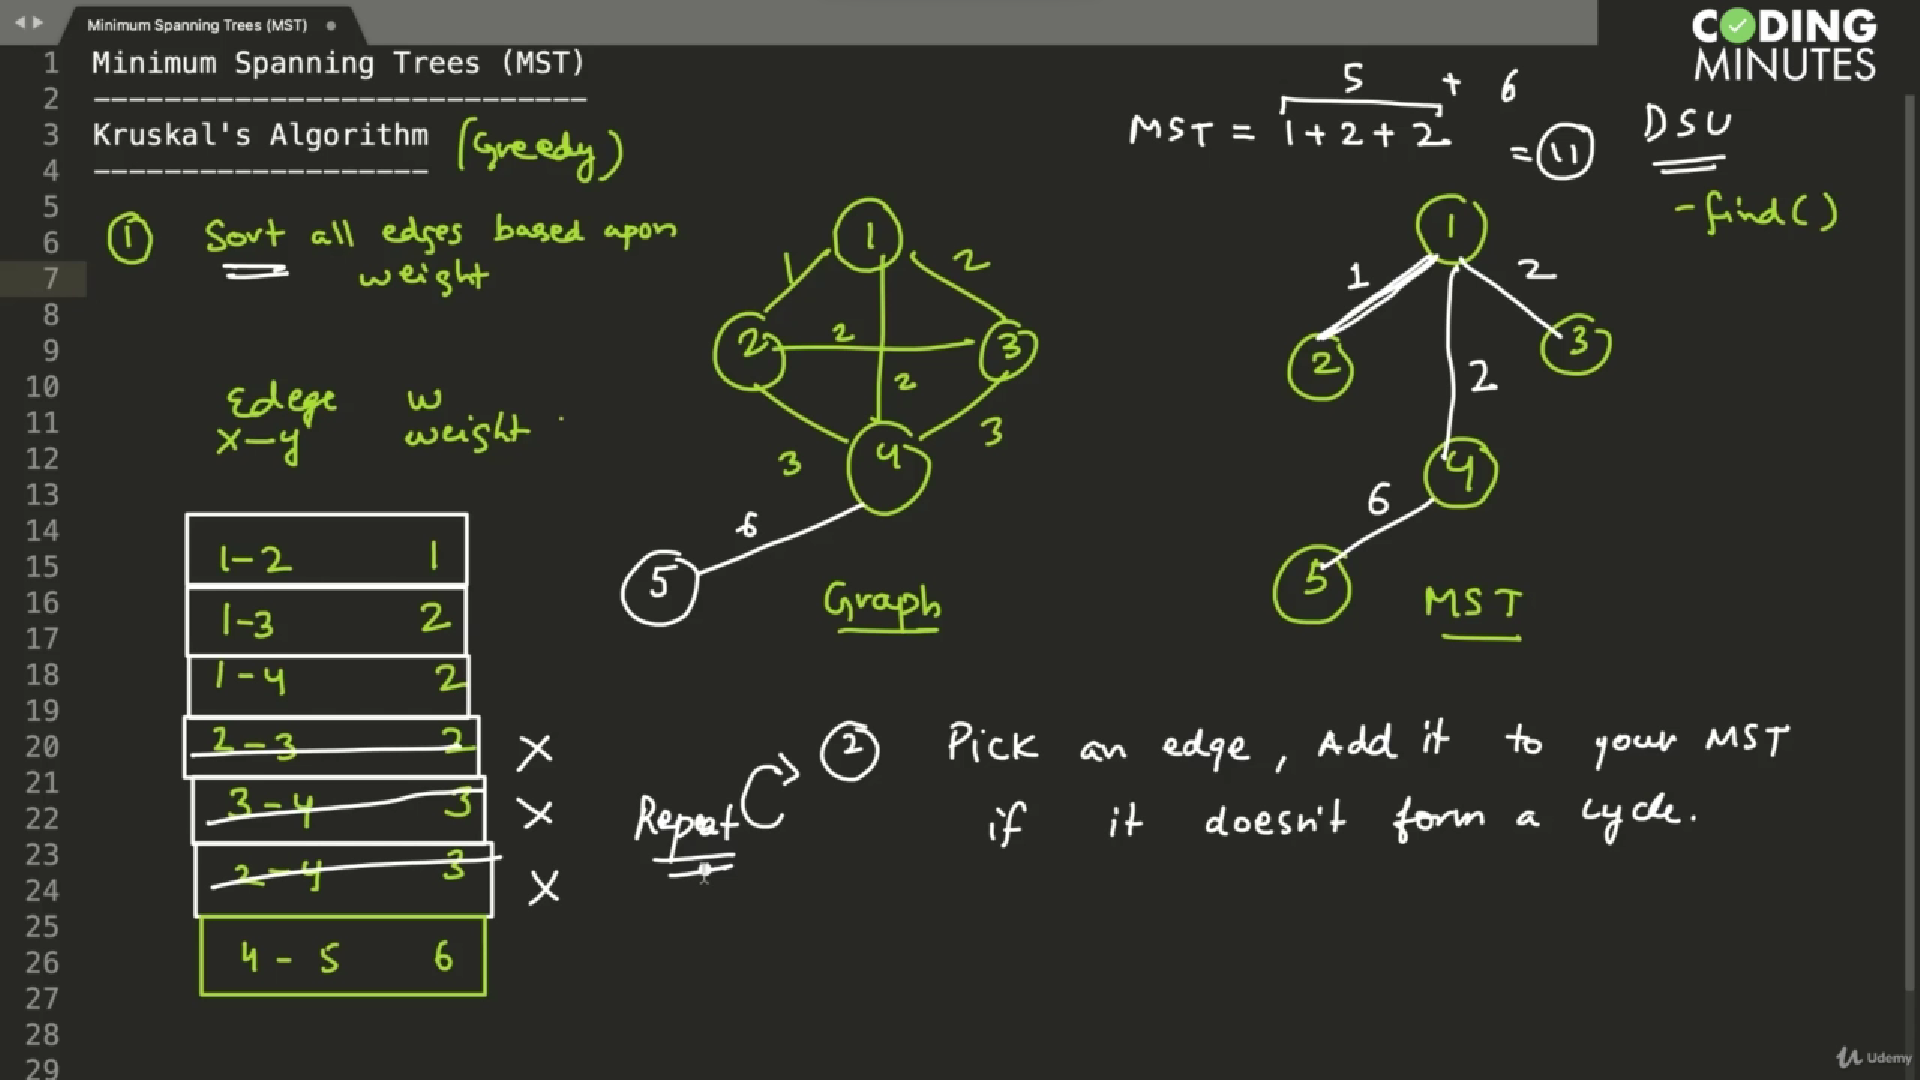 Minimum Spanning Trees (MST)
CODING
MINUTES
1 Minimum Spanning Trees (MST)
2 ----------------------------
3 Kruskal's Algorithm (Greedy)
4 -------------------
5
6
7
8
9
10
11
12
13
14
15
16
17
18
19
20
21
22
23
24
25
26
27
28
29
5 + 6
MST = 1+2+2 = 11
DSU
-find()
1 Sort all edges based apon
weight
Edege w
x-y weight
1-2 1
1-3 2
1-4 2
2-3 2 X
3-4 3 X
2-4 3 X
4-5 6
1
1 2
2 2 3
2
3 4 3
6
5
Graph
1
1 2
2 3
2
4
6
5
MST
Repeat
2 Pick an edge, Add it to your MST
if it doesn't form a cycle.
Udemy